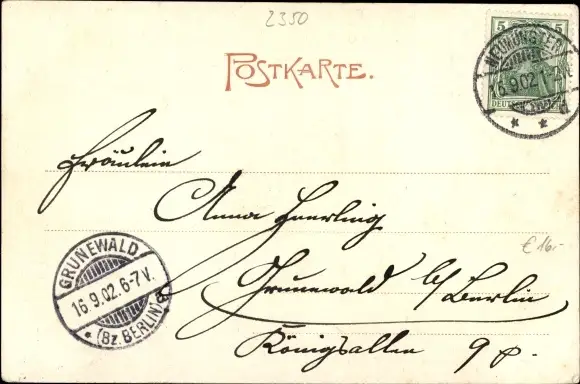 2350
POSTKARTE.
5 5
NEUMÜNSTER
16.9.02 1-2N.
DEUTSCHES
Fräulein
Anna Heerling
€16.-
Grunewald b/Berlin
Königsallee 9 p.
GRUNEWALD
16.9.02.6-7V.
* (Bz.BERLIN)B